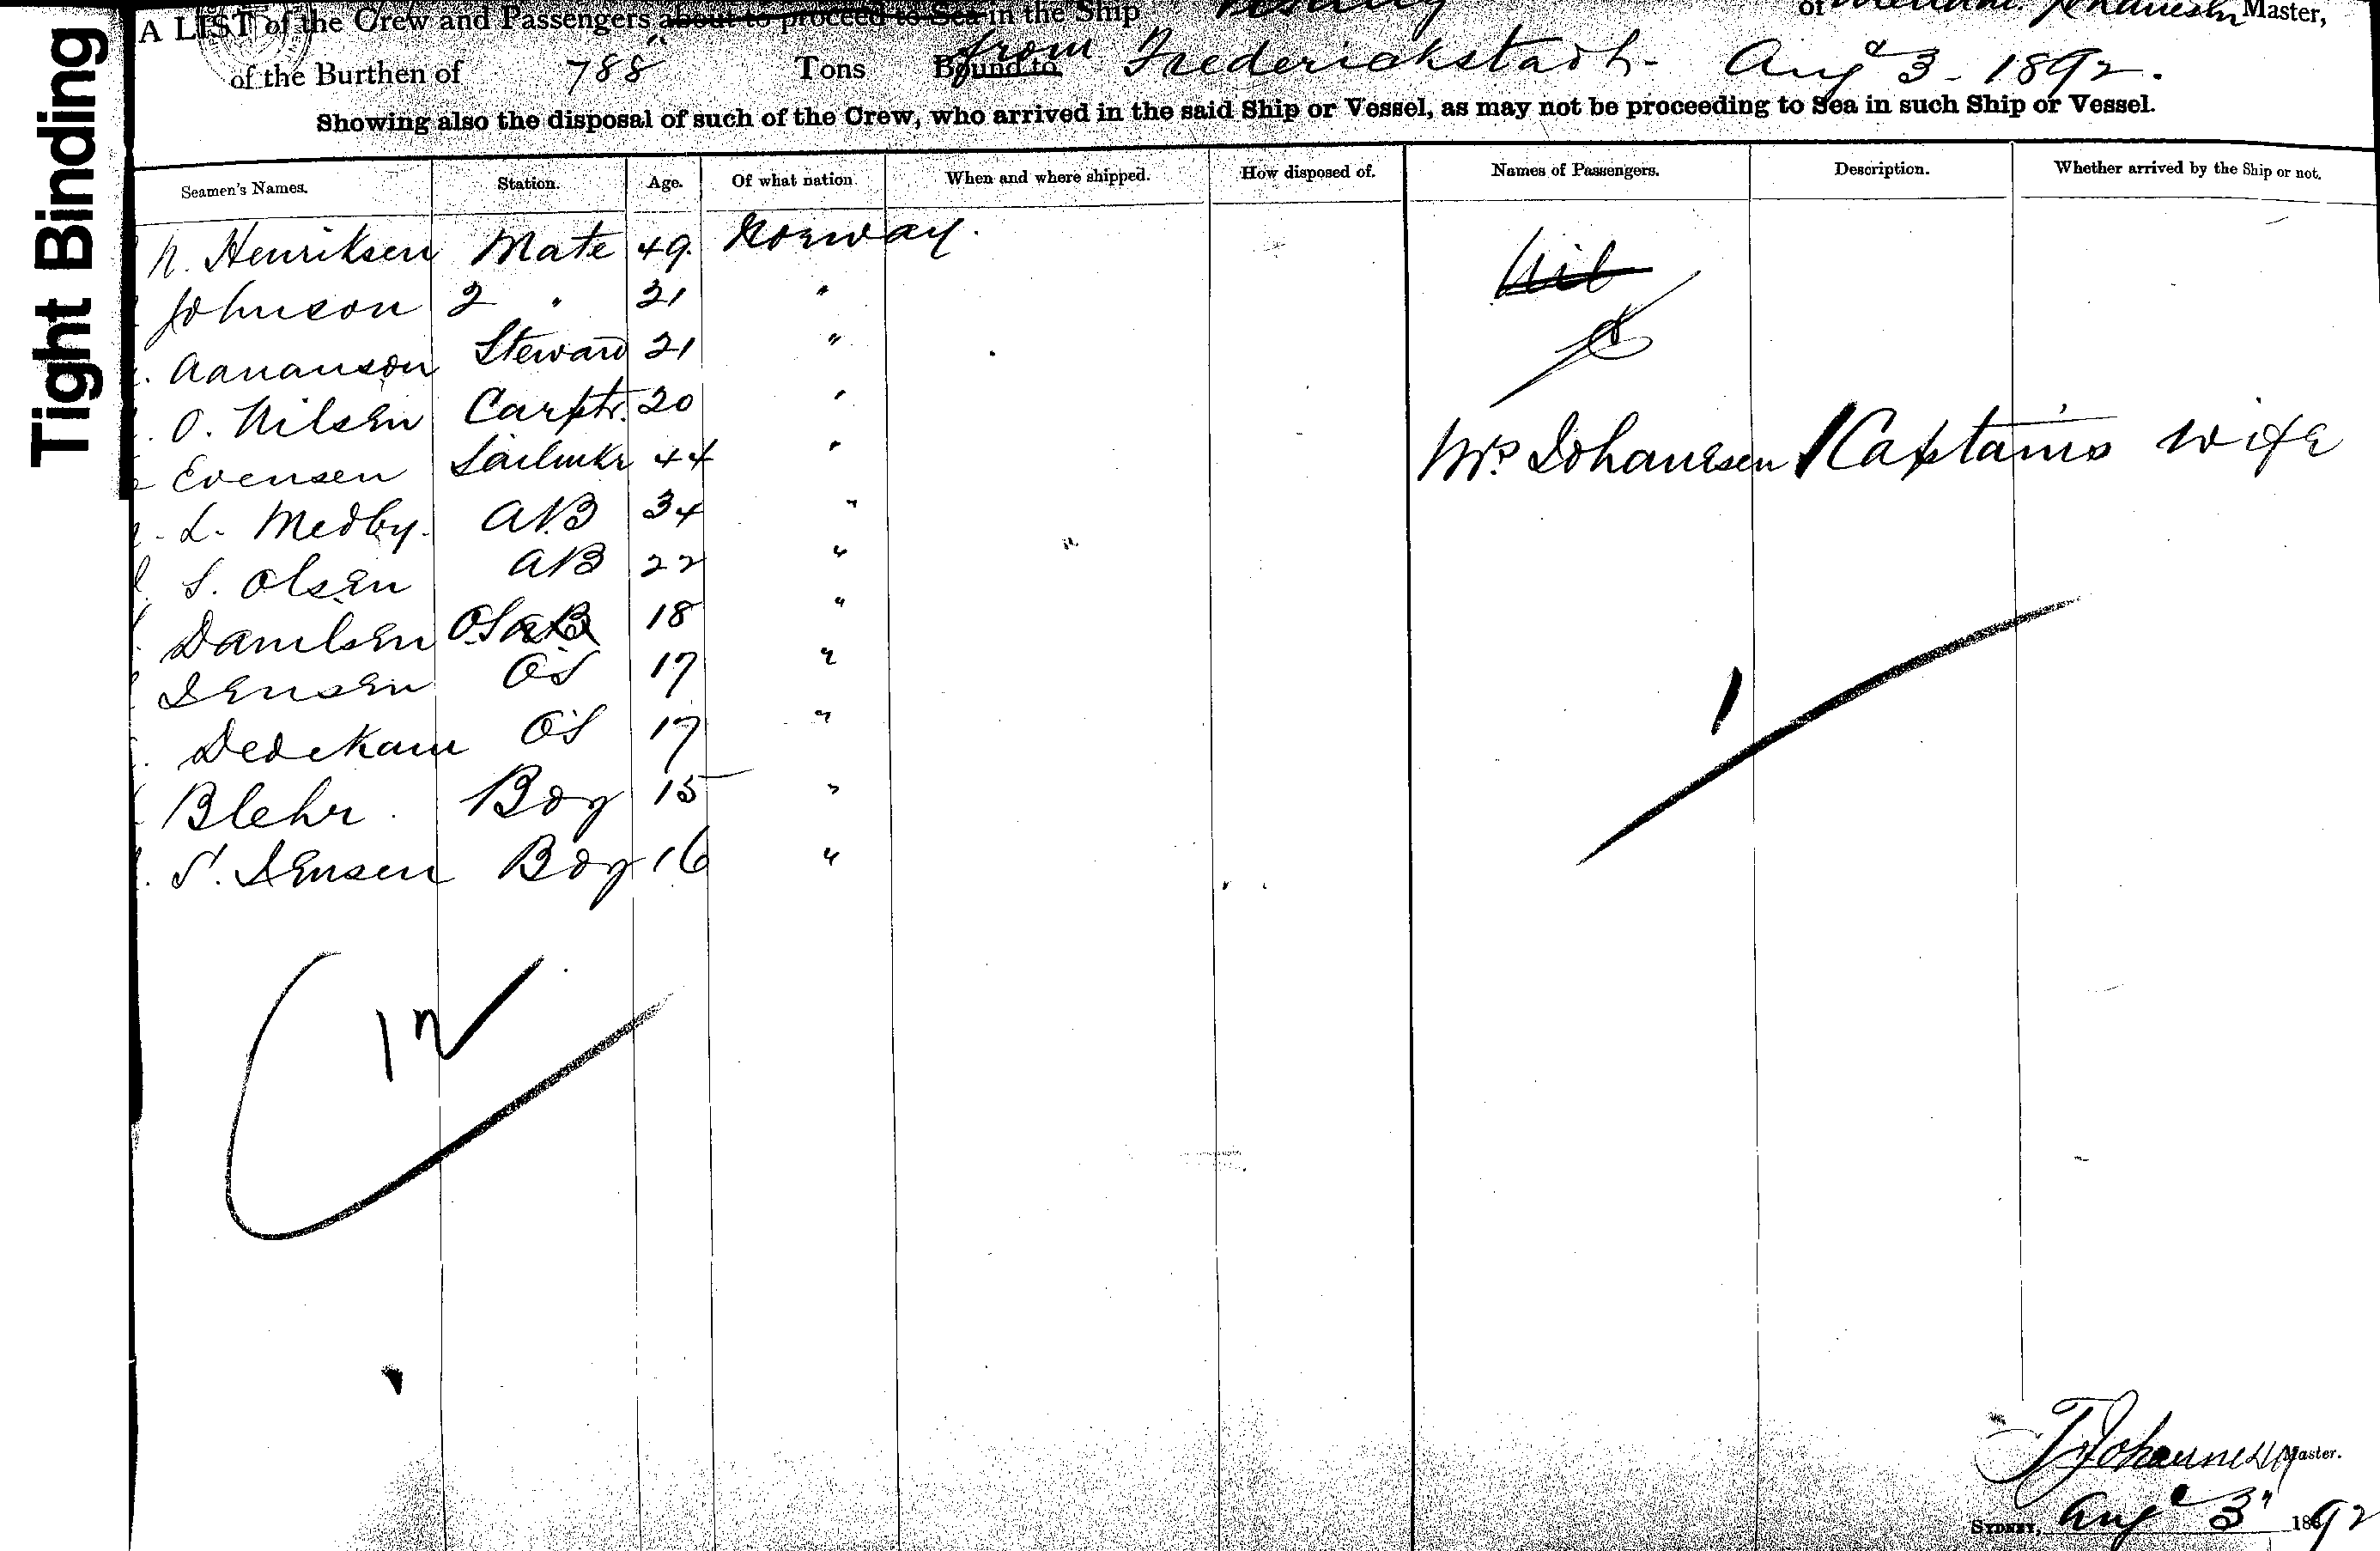 Tight Binding
A LIST of the Crew and Passengers about to proceed to Sea in the Ship of Master,
of the Burthen of 788 Tons Bound to from Frederickstadt - Augt 3 - 1892.
Showing also the disposal of such of the Crew, who arrived in the said Ship or Vessel, as may not be proceeding to Sea in such Ship or Vessel.
Seamen's Names. Station. Age. Of what nation. When and where shipped. How disposed of. Names of Passengers. Description. Whether arrived by the Ship or not.
N. Henriksen Mate 49. Norway. Nil
Johnson 2 " 21 "
Aananson Steward 21 "
O. Nilsen Carptr. 20 "
Evensen Sailmkr 44 " Mrs Johansen 1 Captains wife
L. Medby. AB 34 "
S. Olsen AB 22 "
Danilsen OS AB 18 "
Jensen OS 17 "
Dedekam OS 17 "
Blehr. Boy 15 "
S. Jensen Boy 16 "
1
12
T Johannesen Master.
SYDNEY, Augt 3" 1892